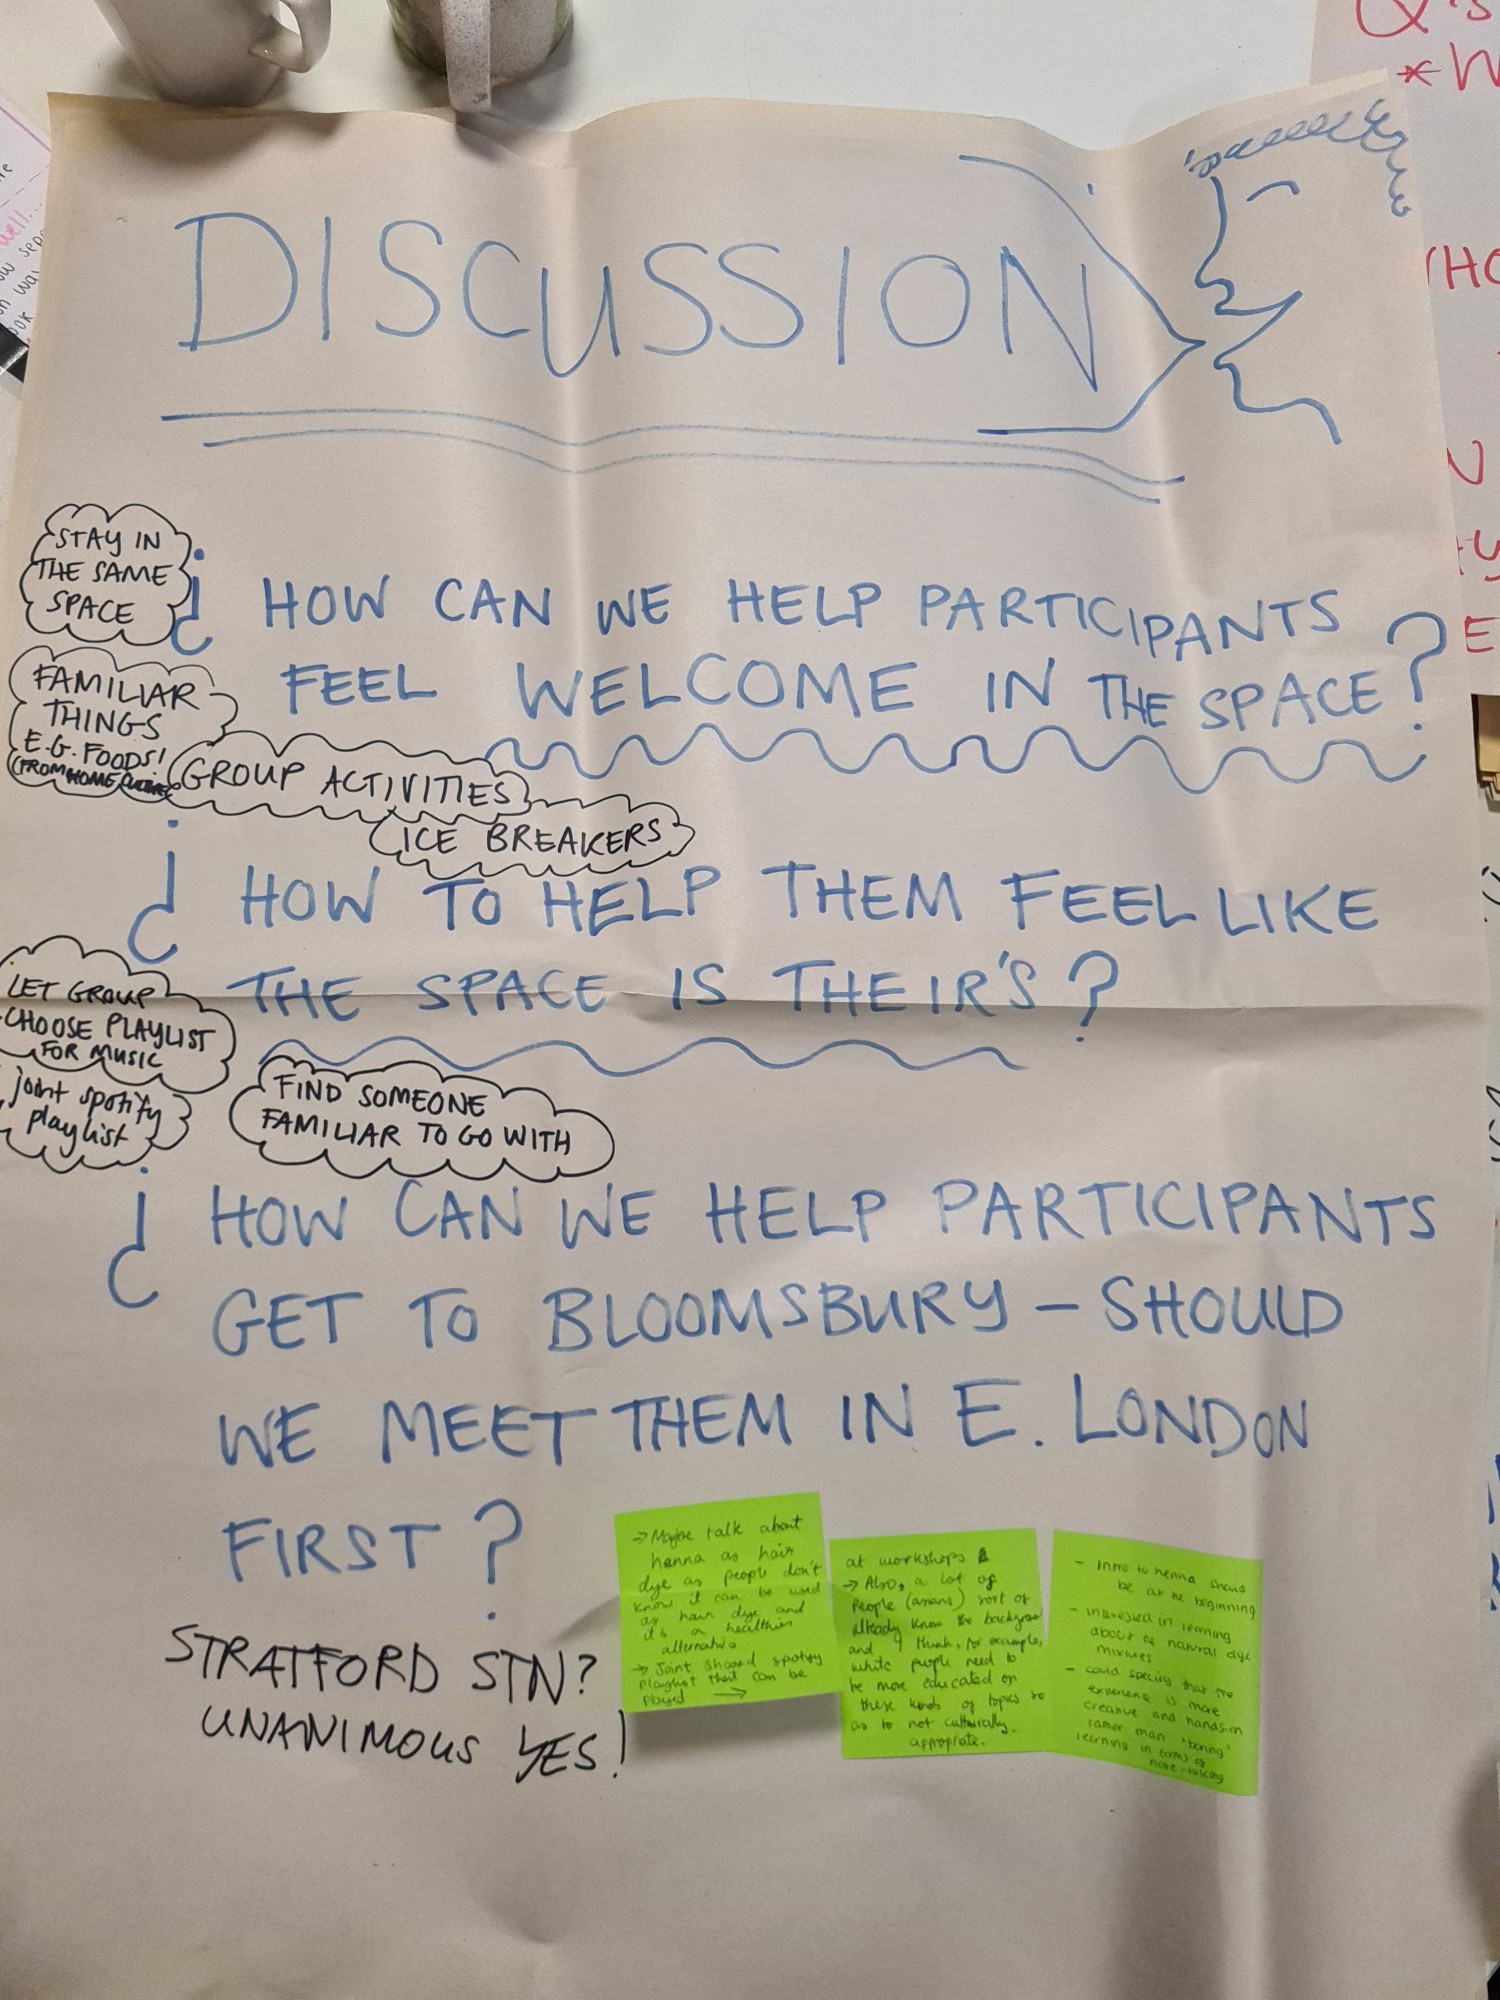 DISCUSSION
STAY IN
THE SAME
SPACE
¿ HOW CAN WE HELP PARTICIPANTS
FEEL WELCOME IN THE SPACE?
FAMILIAR
THINGS
E.G. FOODS!
(FROM HOME
GROUP ACTIVITIES
ICE BREAKERS
¿ HOW TO HELP THEM FEEL LIKE
THE SPACE IS THEIR'S?
LET GROUP
CHOOSE PLAYLIST
FOR MUSIC
joint spotify
playlist
FIND SOMEONE
FAMILIAR TO GO WITH
¿ HOW CAN WE HELP PARTICIPANTS
GET TO BLOOMSBURY – SHOULD
WE MEET THEM IN E. LONDON
FIRST?
STRATFORD STN?
UNANIMOUS YES!
→ Maybe talk about
henna as hair
dye as people don't
know it can be used
as hair dye and
it's a healthier
alternative
→ Joint shared spotify
playlist that can be
played →
at workshops
→ Also, a lot of
people (asians) sort of
already know the background
and I think, for example,
white people need to
be more educated on
these kinds of topics so
as to not culturally
appropriate.
- Intro to henna should
be at the beginning
- interested in learning
about the natural dye
mixtures
- could specify that the
experience is more
creative and hands-on
rather than 'boring'
learning in terms of
note-taking
Q's
* W
HO
N
E
well...